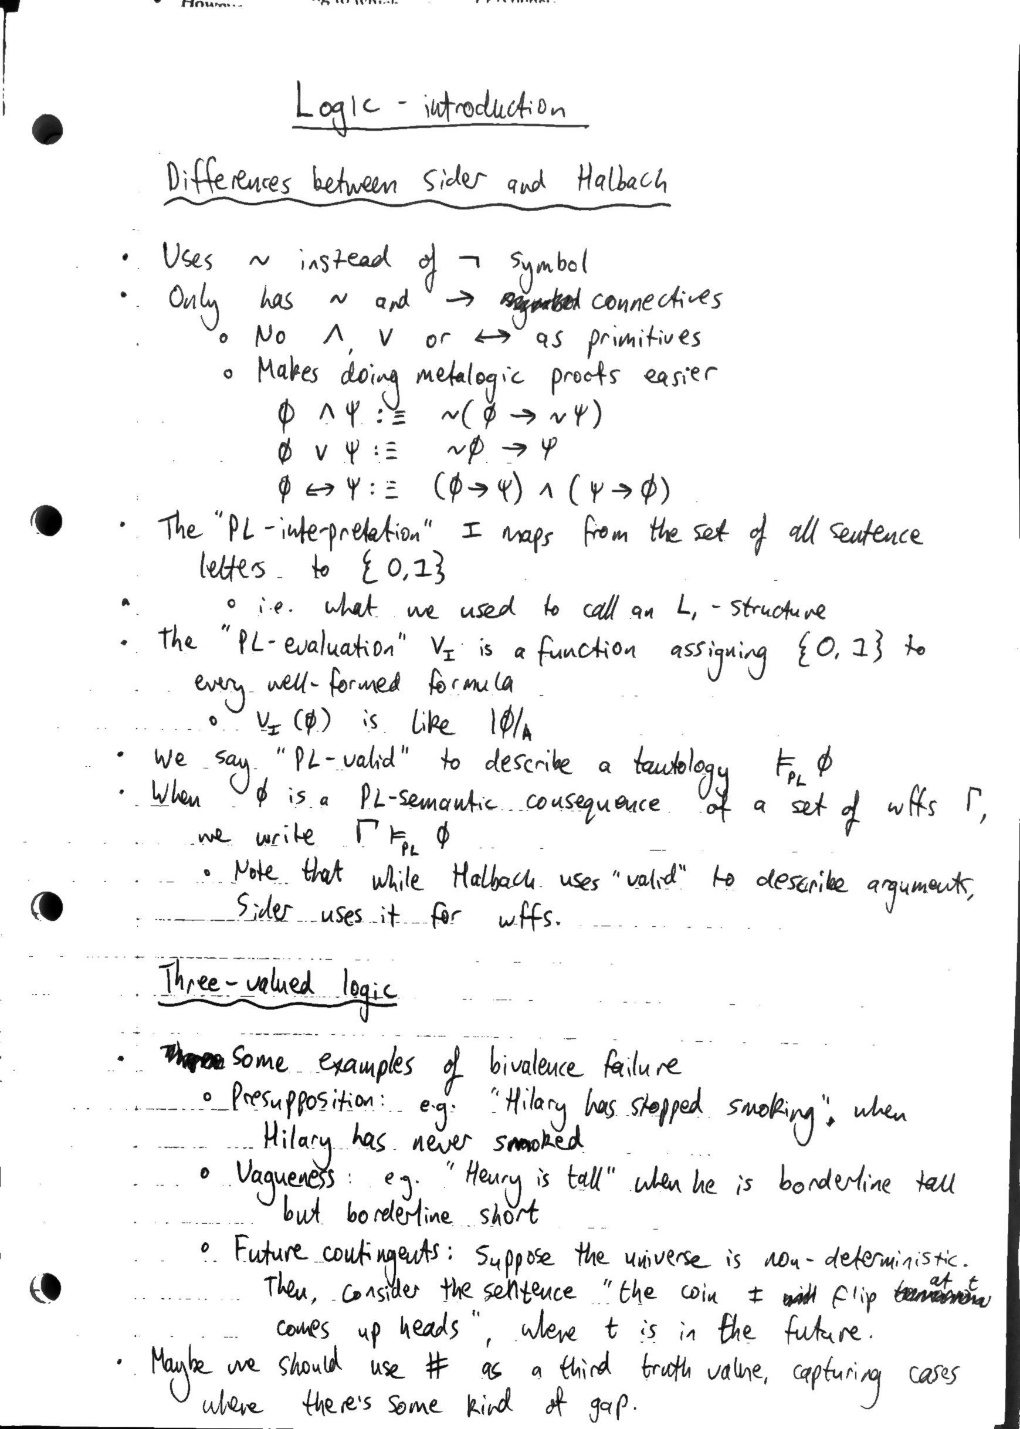 Logic - introduction
Differences between Sider and Halbach
• Uses ~ instead of ¬ symbol
• Only has ~ and → connectives
◦ No ∧, ∨ or ↔ as primitives
◦ Makes doing metalogic proofs easier
φ ∧ ψ :≡ ~(φ → ~ψ)
φ ∨ ψ :≡ ~φ → ψ
φ ↔ ψ :≡ (φ→ψ) ∧ (ψ→φ)
• The "PL-interpretation" I maps from the set of all sentence
letters to {0,1}
◦ i.e. what we used to call an L₁-structure
• The "PL-evaluation" V_I is a function assigning {0,1} to
every well-formed formula
◦ V_I(φ) is like |φ|_A
• We say "PL-valid" to describe a tautology ⊨_PL φ
• When φ is a PL-semantic consequence of a set of wffs Γ,
we write Γ ⊨_PL φ
• Note that while Halbach uses "valid" to describe arguments,
Sider uses it for wffs.
Three-valued logic
• Some examples of bivalence failure
◦ Presupposition: e.g. "Hilary has stopped smoking", when
Hilary has never smoked
◦ Vagueness: e.g. "Henry is tall" when he is borderline tall
but borderline short
◦ Future contingents: Suppose the universe is non-deterministic.
Then, consider the sentence "the coin I flip at t
comes up heads", where t is in the future.
• Maybe we should use # as a third truth value, capturing cases
where there's some kind of gap.